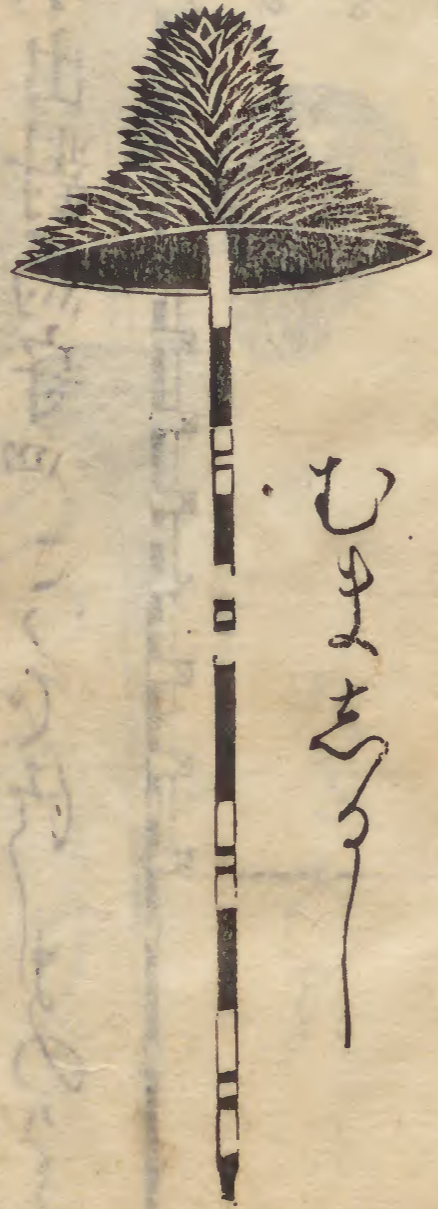 むま志るし